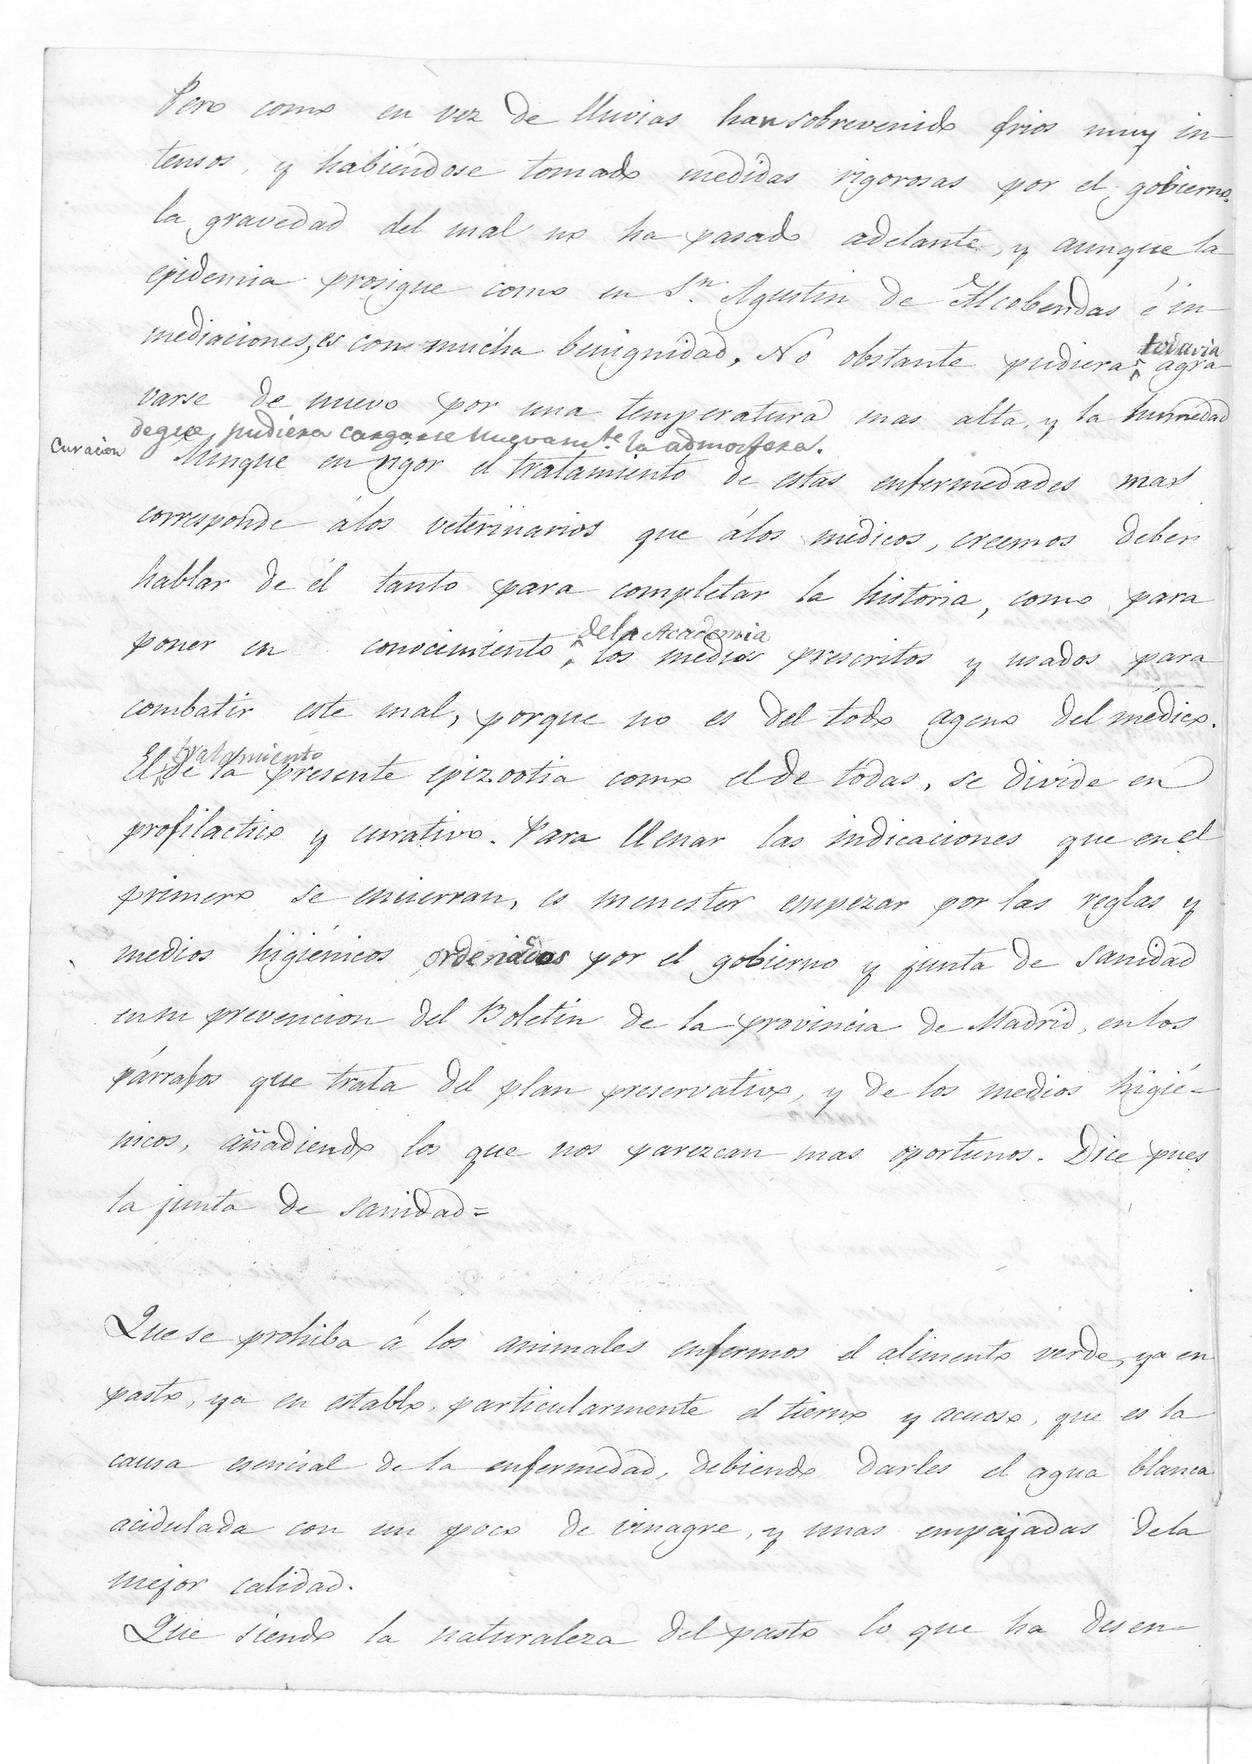 Pero como en vez de lluvias han sobrevenido frios muy in-
tensos, y habiéndose tomado medidas rigorosas por el gobierno.
la gravedad del mal no ha pasado adelante, y aunque la
epidemia prosigue como en Sn. Agustin de Alcobendas é in-
mediaciones, es con mucha benignidad, No obstante pudiera todavia agra
varse de nuevo por una temperatura mas alta, y la humedad
de que pudiera cargarse nuevamte. la admosfera.
Curacion
Aunque en rigor el tratamiento de estas enfermedades mas
corresponde álos veterinarios que álos médicos, creemos deber
hablar de él tanto para completar la historia, como para
poner en conocimiento dela Academia los medios prescritos y usados para
combatir este mal, porque no es del todo ageno del médico.
El tratamiento de la presente epizootia como el de todas, se divide en
profilactico y curativo. Para llenar las indicaciones que en el
primero se encierran, es menester empezar por las reglas y
medios higiénicos ordenados por el gobierno y junta de sanidad
en su prevencion del Boletin de la provincia de Madrid, en los
párrafos que trata del plan preservativo, y de los medios higié-
nicos, añadiendo los que nos parezcan mas oportunos. Dice pues
la junta de sanidad=
Que se prohiba á los animales enfermos el alimento verde, ya en
pasto, ya en establo, particularmente el tierno y acuoso, que es la
causa esencial de la enfermedad, debiendo darles el agua blanca
acidulada con un poco de vinagre, y unas empajadas dela
mejor calidad.
Que siendo la naturaleza del pasto lo que ha desen-